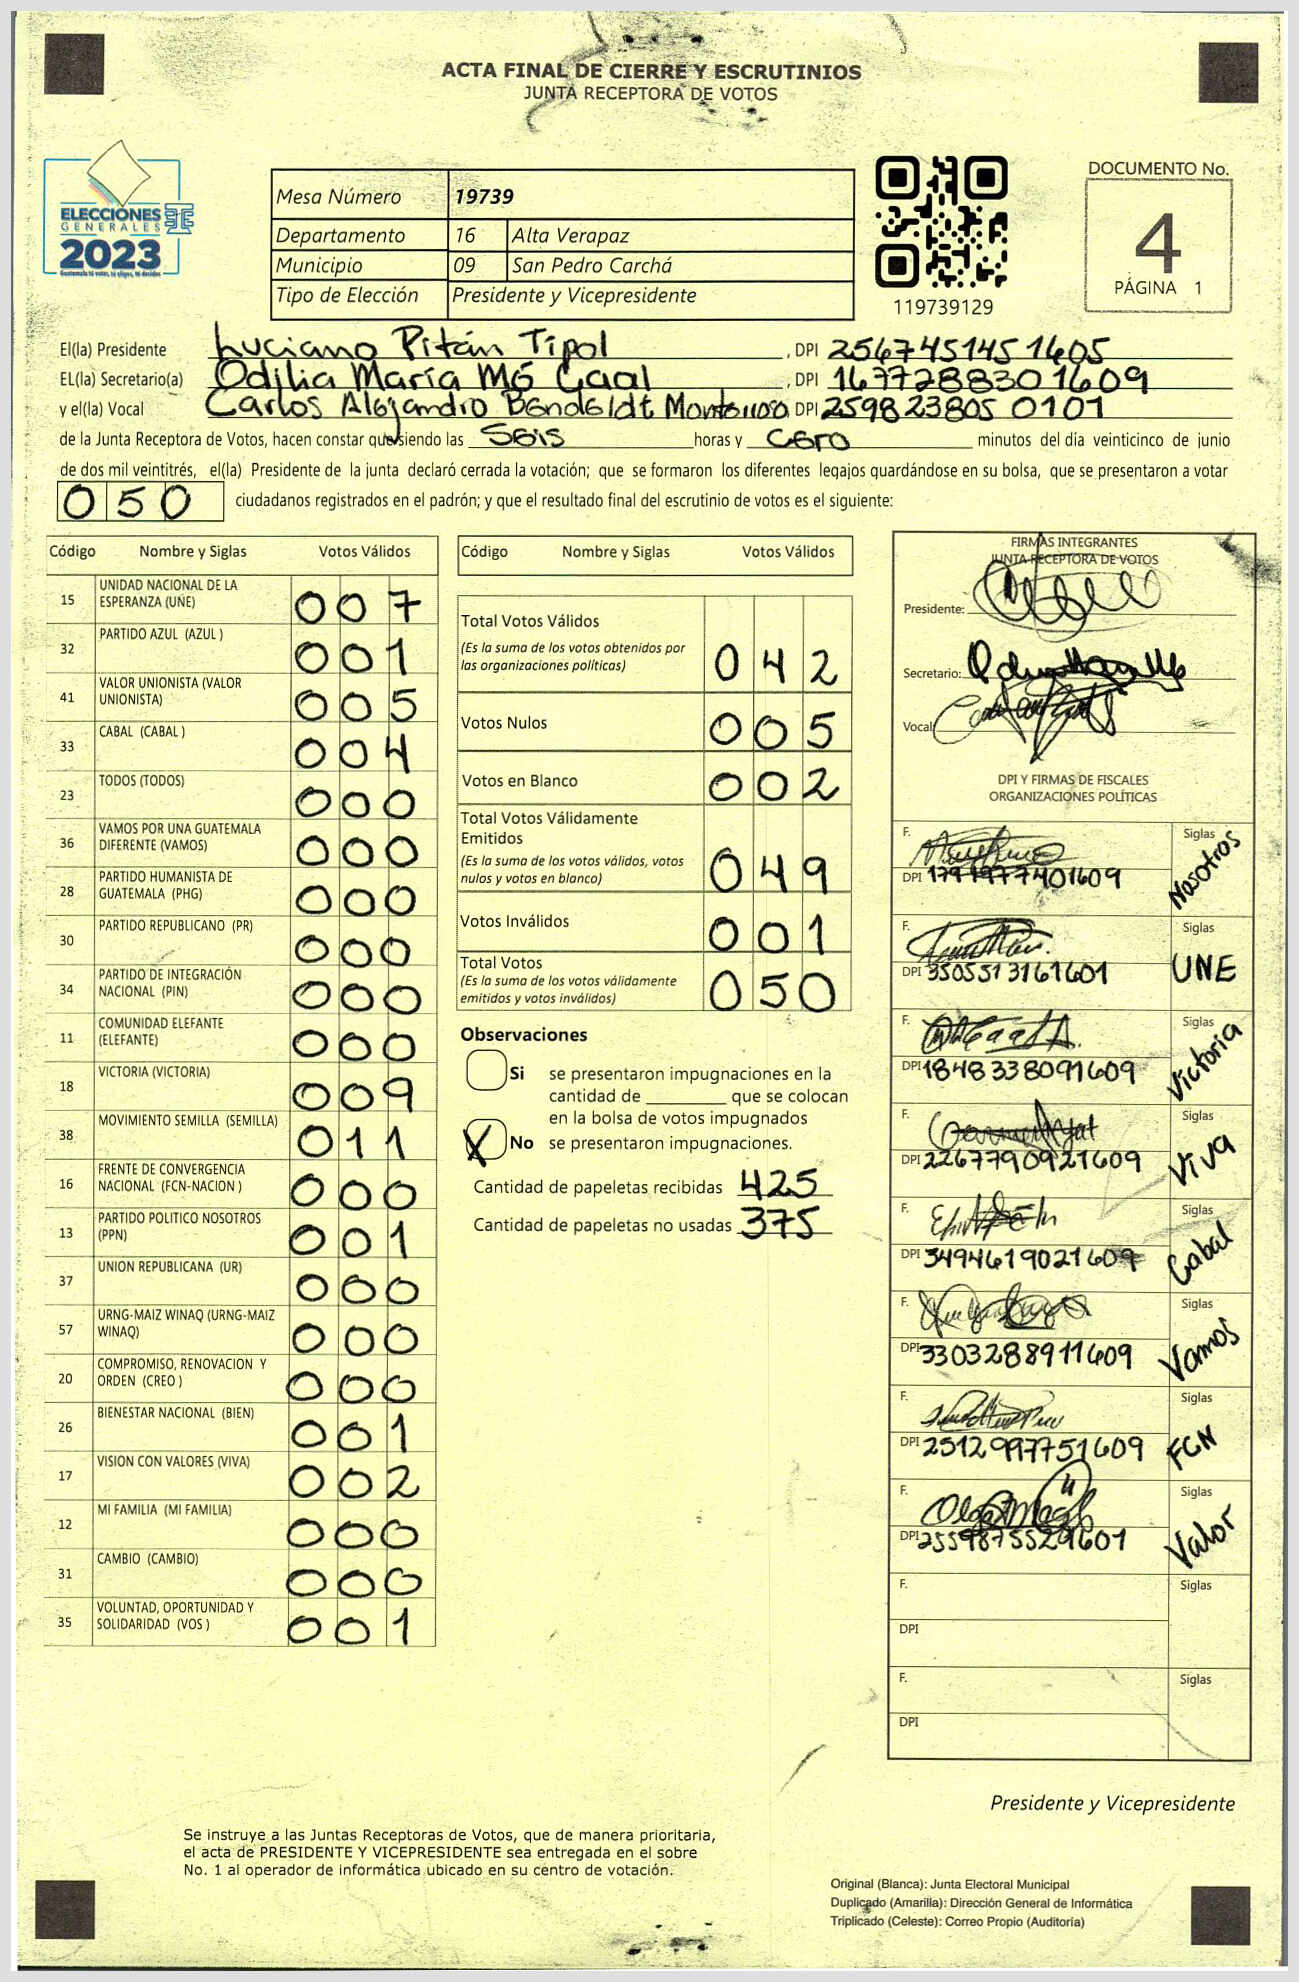 ACTA FINAL DE CIERRE Y ESCRUTINIOS
JUNTA RECEPTORA DE VOTOS
ELECCIONES
GENERALES
2023
Mesa Número 19739
Departamento 16 Alta Verapaz
Municipio 09 San Pedro Carchá
Tipo de Elección Presidente y Vicepresidente
119739129
DOCUMENTO No.
4
PÁGINA 1
El(la) Presidente Luciano Pitán Tipol , DPI 2567451451605
EL(la) Secretario(a) Odilia María Mó Caal , DPI 1677288301609
y el(la) Vocal Carlos Alejandro Bendeldt DPI 2598238050101
de la Junta Receptora de Votos, hacen constar que siendo las Seis horas y Cero minutos del día veinticinco de junio
de dos mil veintitrés, el(la) Presidente de la junta declaró cerrada la votación; que se formaron los diferentes legajos guardándose en su bolsa, que se presentaron a votar
050 ciudadanos registrados en el padrón; y que el resultado final del escrutinio de votos es el siguiente:
Código Nombre y Siglas Votos Válidos
15 UNIDAD NACIONAL DE LA ESPERANZA (UNE) 007
32 PARTIDO AZUL (AZUL ) 001
41 VALOR UNIONISTA (VALOR UNIONISTA) 005
33 CABAL (CABAL ) 004
23 TODOS (TODOS) 000
36 VAMOS POR UNA GUATEMALA DIFERENTE (VAMOS) 000
28 PARTIDO HUMANISTA DE GUATEMALA (PHG) 000
30 PARTIDO REPUBLICANO (PR) 000
34 PARTIDO DE INTEGRACIÓN NACIONAL (PIN) 000
11 COMUNIDAD ELEFANTE (ELEFANTE) 000
18 VICTORIA (VICTORIA) 009
38 MOVIMIENTO SEMILLA (SEMILLA) 011
16 FRENTE DE CONVERGENCIA NACIONAL (FCN-NACION ) 000
13 PARTIDO POLITICO NOSOTROS (PPN) 001
37 UNION REPUBLICANA (UR) 000
57 URNG-MAIZ WINAQ (URNG-MAIZ WINAQ) 000
20 COMPROMISO, RENOVACION Y ORDEN (CREO ) 000
26 BIENESTAR NACIONAL (BIEN) 001
17 VISION CON VALORES (VIVA) 002
12 MI FAMILIA (MI FAMILIA) 000
31 CAMBIO (CAMBIO) 000
35 VOLUNTAD, OPORTUNIDAD Y SOLIDARIDAD (VOS ) 001
Código Nombre y Siglas Votos Válidos
Total Votos Válidos 042
(Es la suma de los votos obtenidos por
las organizaciones políticas)
Votos Nulos 005
Votos en Blanco 002
Total Votos Válidamente
Emitidos 049
(Es la suma de los votos válidos, votos
nulos y votos en blanco)
Votos Inválidos 001
Total Votos 050
(Es la suma de los votos válidamente
emitidos y votos inválidos)
Observaciones
Si se presentaron impugnaciones en la
cantidad de ________ que se colocan
en la bolsa de votos impugnados
X No se presentaron impugnaciones.
Cantidad de papeletas recibidas 425
Cantidad de papeletas no usadas 375
FIRMAS INTEGRANTES
JUNTA RECEPTORA DE VOTOS
Presidente:
Secretario:
Vocal:
DPI Y FIRMAS DE FISCALES
ORGANIZACIONES POLÍTICAS
F. Siglas Nosotros
DPI
F. Siglas UNE
DPI 3505513161601
F. Siglas Victoria
DPI 1848338091609
F. Siglas Viva
DPI 2267790921609
F. Siglas Cabal
DPI 3494619021609
F. Siglas Vamos
DPI 3303288911609
F. Siglas FCN
DPI 2512997751609
F. Siglas Valor
DPI 2559875529601
F. Siglas
DPI
F. Siglas
DPI
Presidente y Vicepresidente
Se instruye a las Juntas Receptoras de Votos, que de manera prioritaria,
el acta de PRESIDENTE Y VICEPRESIDENTE sea entregada en el sobre
No. 1 al operador de informática ubicado en su centro de votación.
Original (Blanca): Junta Electoral Municipal
Duplicado (Amarilla): Dirección General de Informática
Triplicado (Celeste): Correo Propio (Auditoría)